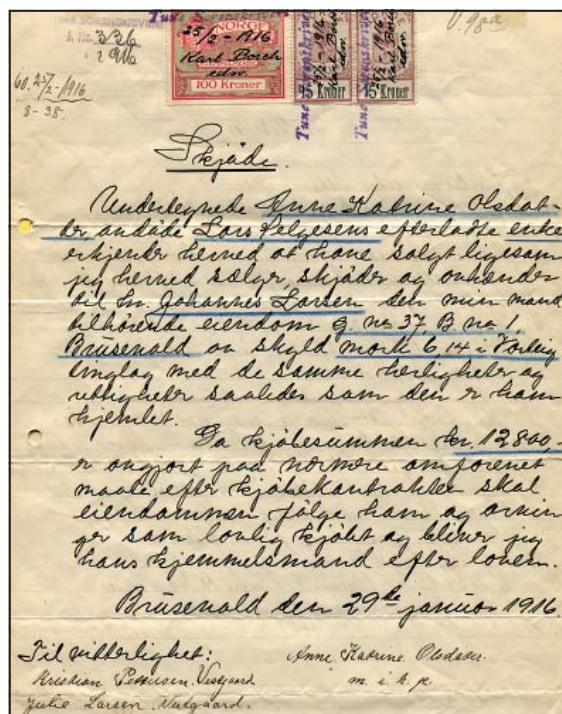 TUNE SORENSKRIVERI
J. No. 336
1916
60. 25/2-1916
8-38.
NORGE
25/2-1916
Karl Borch
edw
100 Kroner
Tune Sorenskriveri
25/2-1916
Karl Borch
edw
15 Kroner
Tune Sorenskriveri
25/2-1916
Karl Borch
edw
15 Kroner
Skjøde.
Undertegnede Anne Katrine Olsdat-
der avdøde Lars Helgesens efterladte enke
erkjender herved at have solgt ligesom
jeg herved sælger, skjøder og avhænder
til hr. Johannes Larsen den min mand
tilhørende eiendom G. no 37, B. no 1,
Brusevold av skyld mark 6,14 i Varteig
tinglag med de samme herligheter og
rettigheter saaledes som den er ham
hjemlet.
Da kjøbesummen kr. 12800,-
er avgjort paa nærmere omforenet
maate efter kjøbekontrakten skal
eiendommen følge ham og arvin
ger som lovlig kjøbt og bliver jeg
hans hjemmelsmand efter loven.
Brusevold den 29de januar 1916.
Til vitterlighet:
Kristian Pettersen, Vestgaard
Julie Larsen. Vestgaard.
Anne Katrine Olsdater.
m. i. h. p.